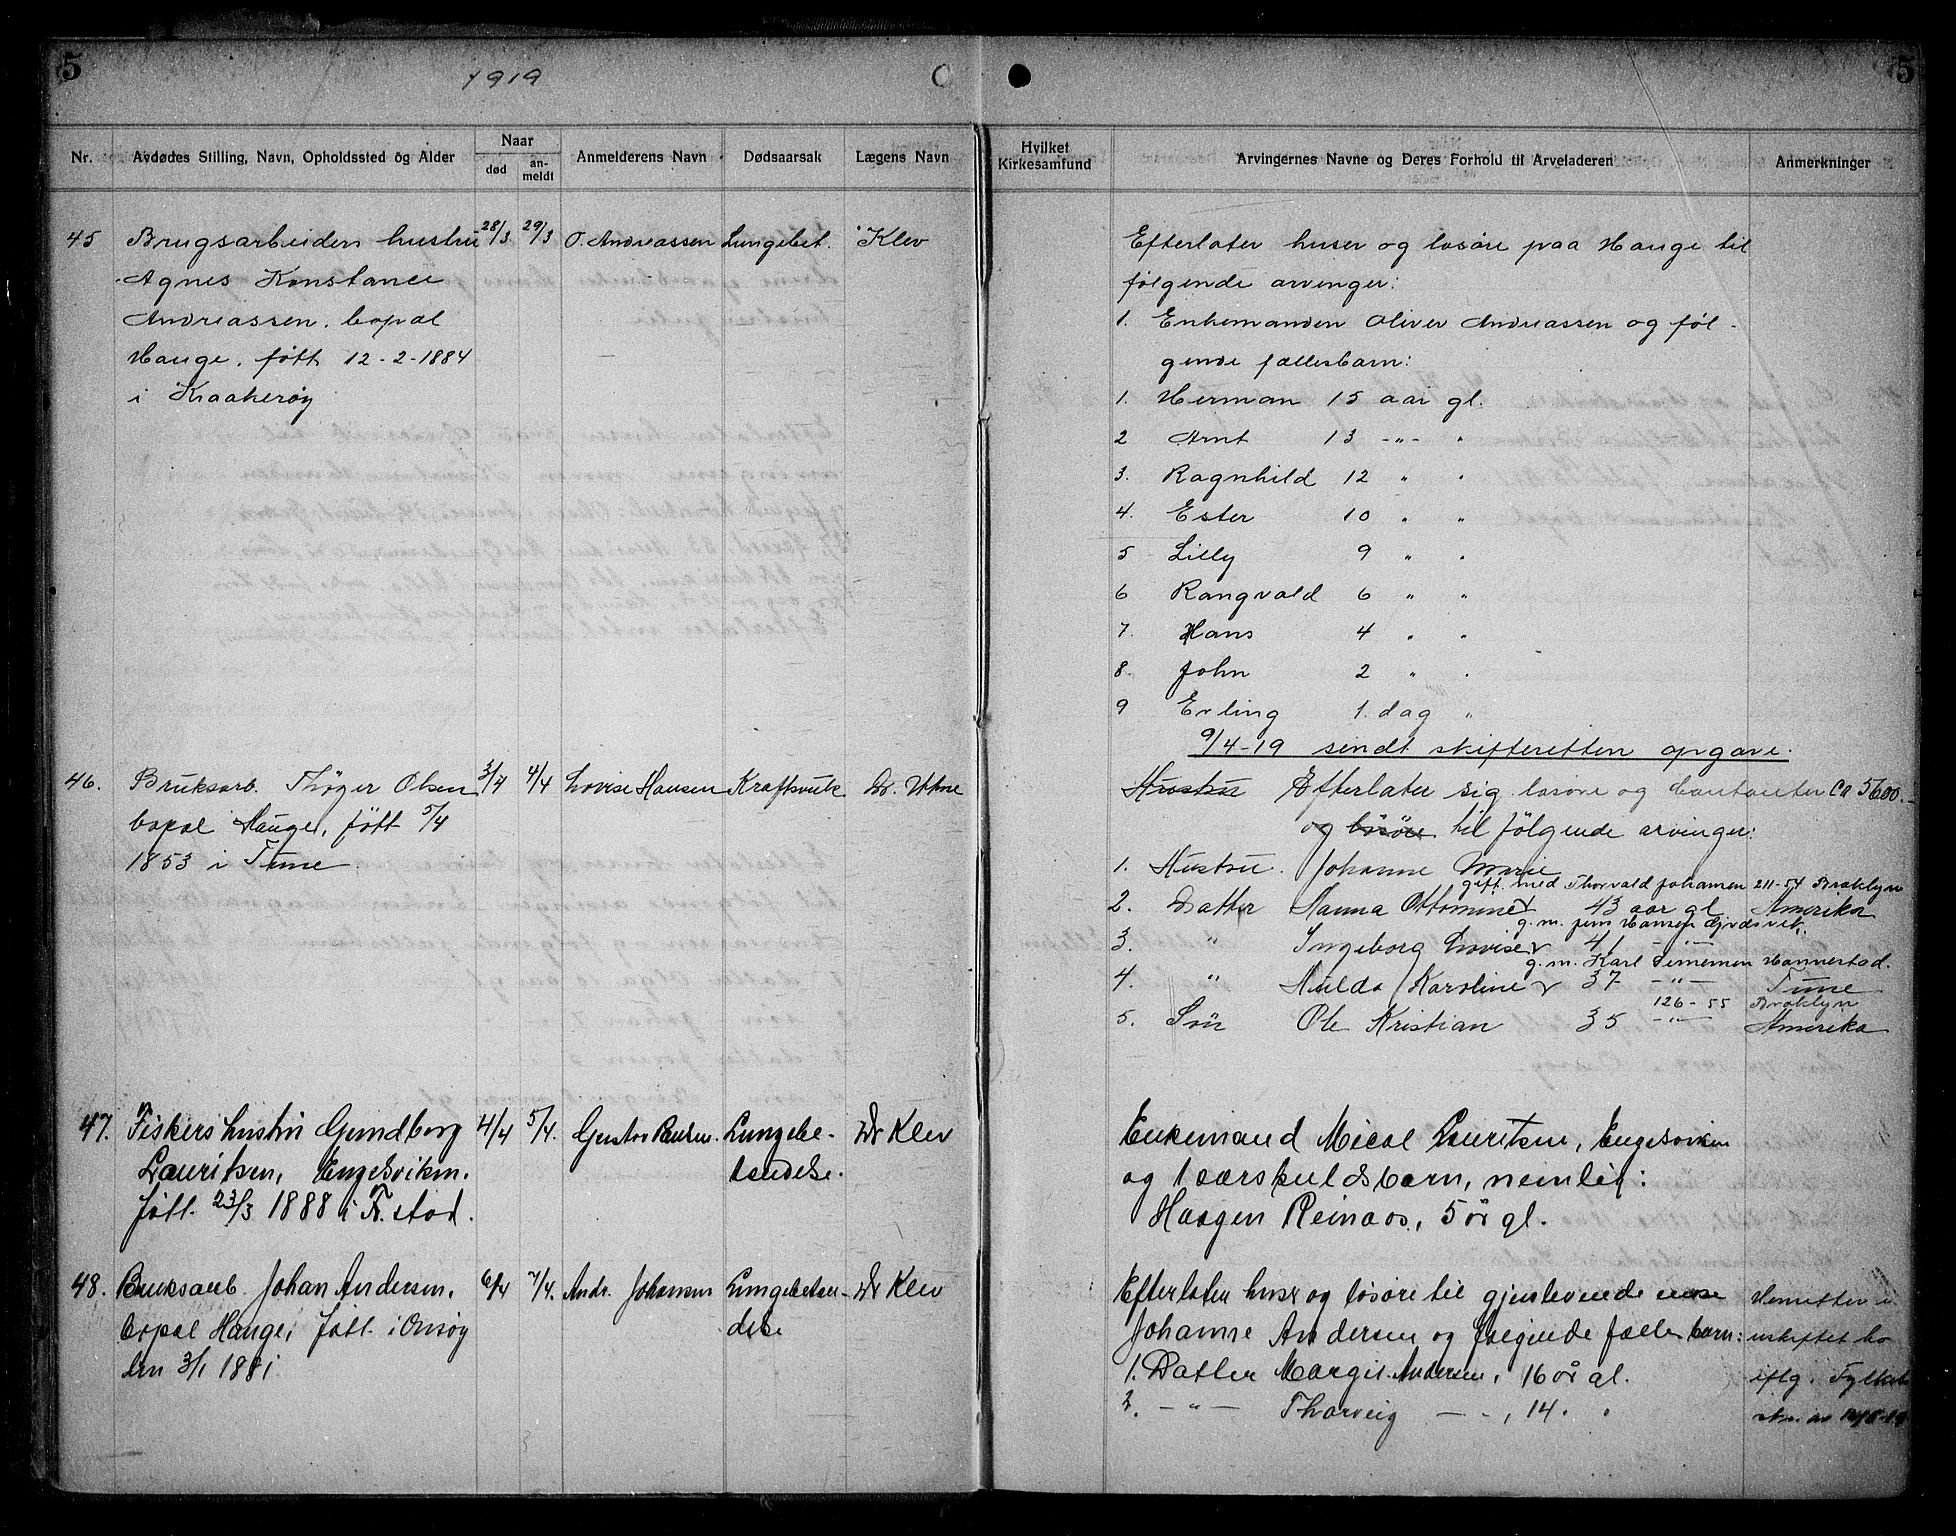 5
1919
5
Nr.
Avdødes Stilling, Navn, Opholdssted og Alder
Naar
død
an-
meldt
Anmelderens Navn
Dødsaarsak
Lægens Navn
Hvilket
Kirkesamfund
Arvingernes Navne og Deres Forhold til Arveladeren
Anmerkninger
45 Brugsarbeiders hustru 28/3 29/3 O. Andreassen Lungebet. Klev
Agnes Konstance
Andreassen. bopæl
Hauge. født 12-2-1884
i Kraakerøy
Efterlater huser og løsøre paa Hauge til
følgende arvinger:
1. Enkemanden Oliver Andreassen og føl-
gende fællesbarn:
1. Herman 15 aar gl.
2 Arnt 13 -"- "
3. Ragnhild 12 " "
4. Ester 10 " "
5 Lilly 9 " "
6 Rangvald 6 " "
7. Hans 4 " "
8. John 2 " "
9 Erling 1. dag "
9/4-19 sendt skifteretten opgave.
46. Bruksarb. Thøger Olsen 3/4 4/4 Lovise Hansen Kraftsvulk Dr. Uttne
bopæl Hauge, født 5/4
1853 i Tune
Hustru Efterlater sig løsøre og Contanter ca 5600.-
og løsøre til følgende arvinger:
1. Hustru. Johanne Marie
gift. med Thorvald Johansen 211-54 Broklyn
2. Datter Hanna Ottomine 43 aar gl Amerika
g. m. Jens Hansen
3. " Ingeborg Lovise 41 -"-
g. m. Karl Simensen Hannestad.
4. " Hulda Karoline 37 -"- Tune
126-55 Broklyn
5. Søn Ole Kristian 35 -"- Amerika
47. Fiskers hustru Gundborg 4/4 5/4. Gustav Paulsen. Lungebe- Dr Klev
Lauritsen, Engelsviken. tendelse.
født. 23/3 1888 i Fr.stad.
Enkemand Micael Lauritsen, Engelsviken
og 1 særskulds barn, nemlig:
Haagen Reinaos, 5 år gl.
48. Bruksarb. Johan Andersen, 6/4 7/4. Andr. Johansen Lungebeten- Dr Klev
bopæl Hauge, født i Onsøy delse
den 3/1 1881
Efterlater huser og løsøre til gjenlevende enke Hensitter i
Johanne Andersen og følgende fælles barn: uskiftet bo
1. Datter Margit Andersen, 16 år gl. iflg. Fylkets
2. -"- Thorveig -"-, 14. "